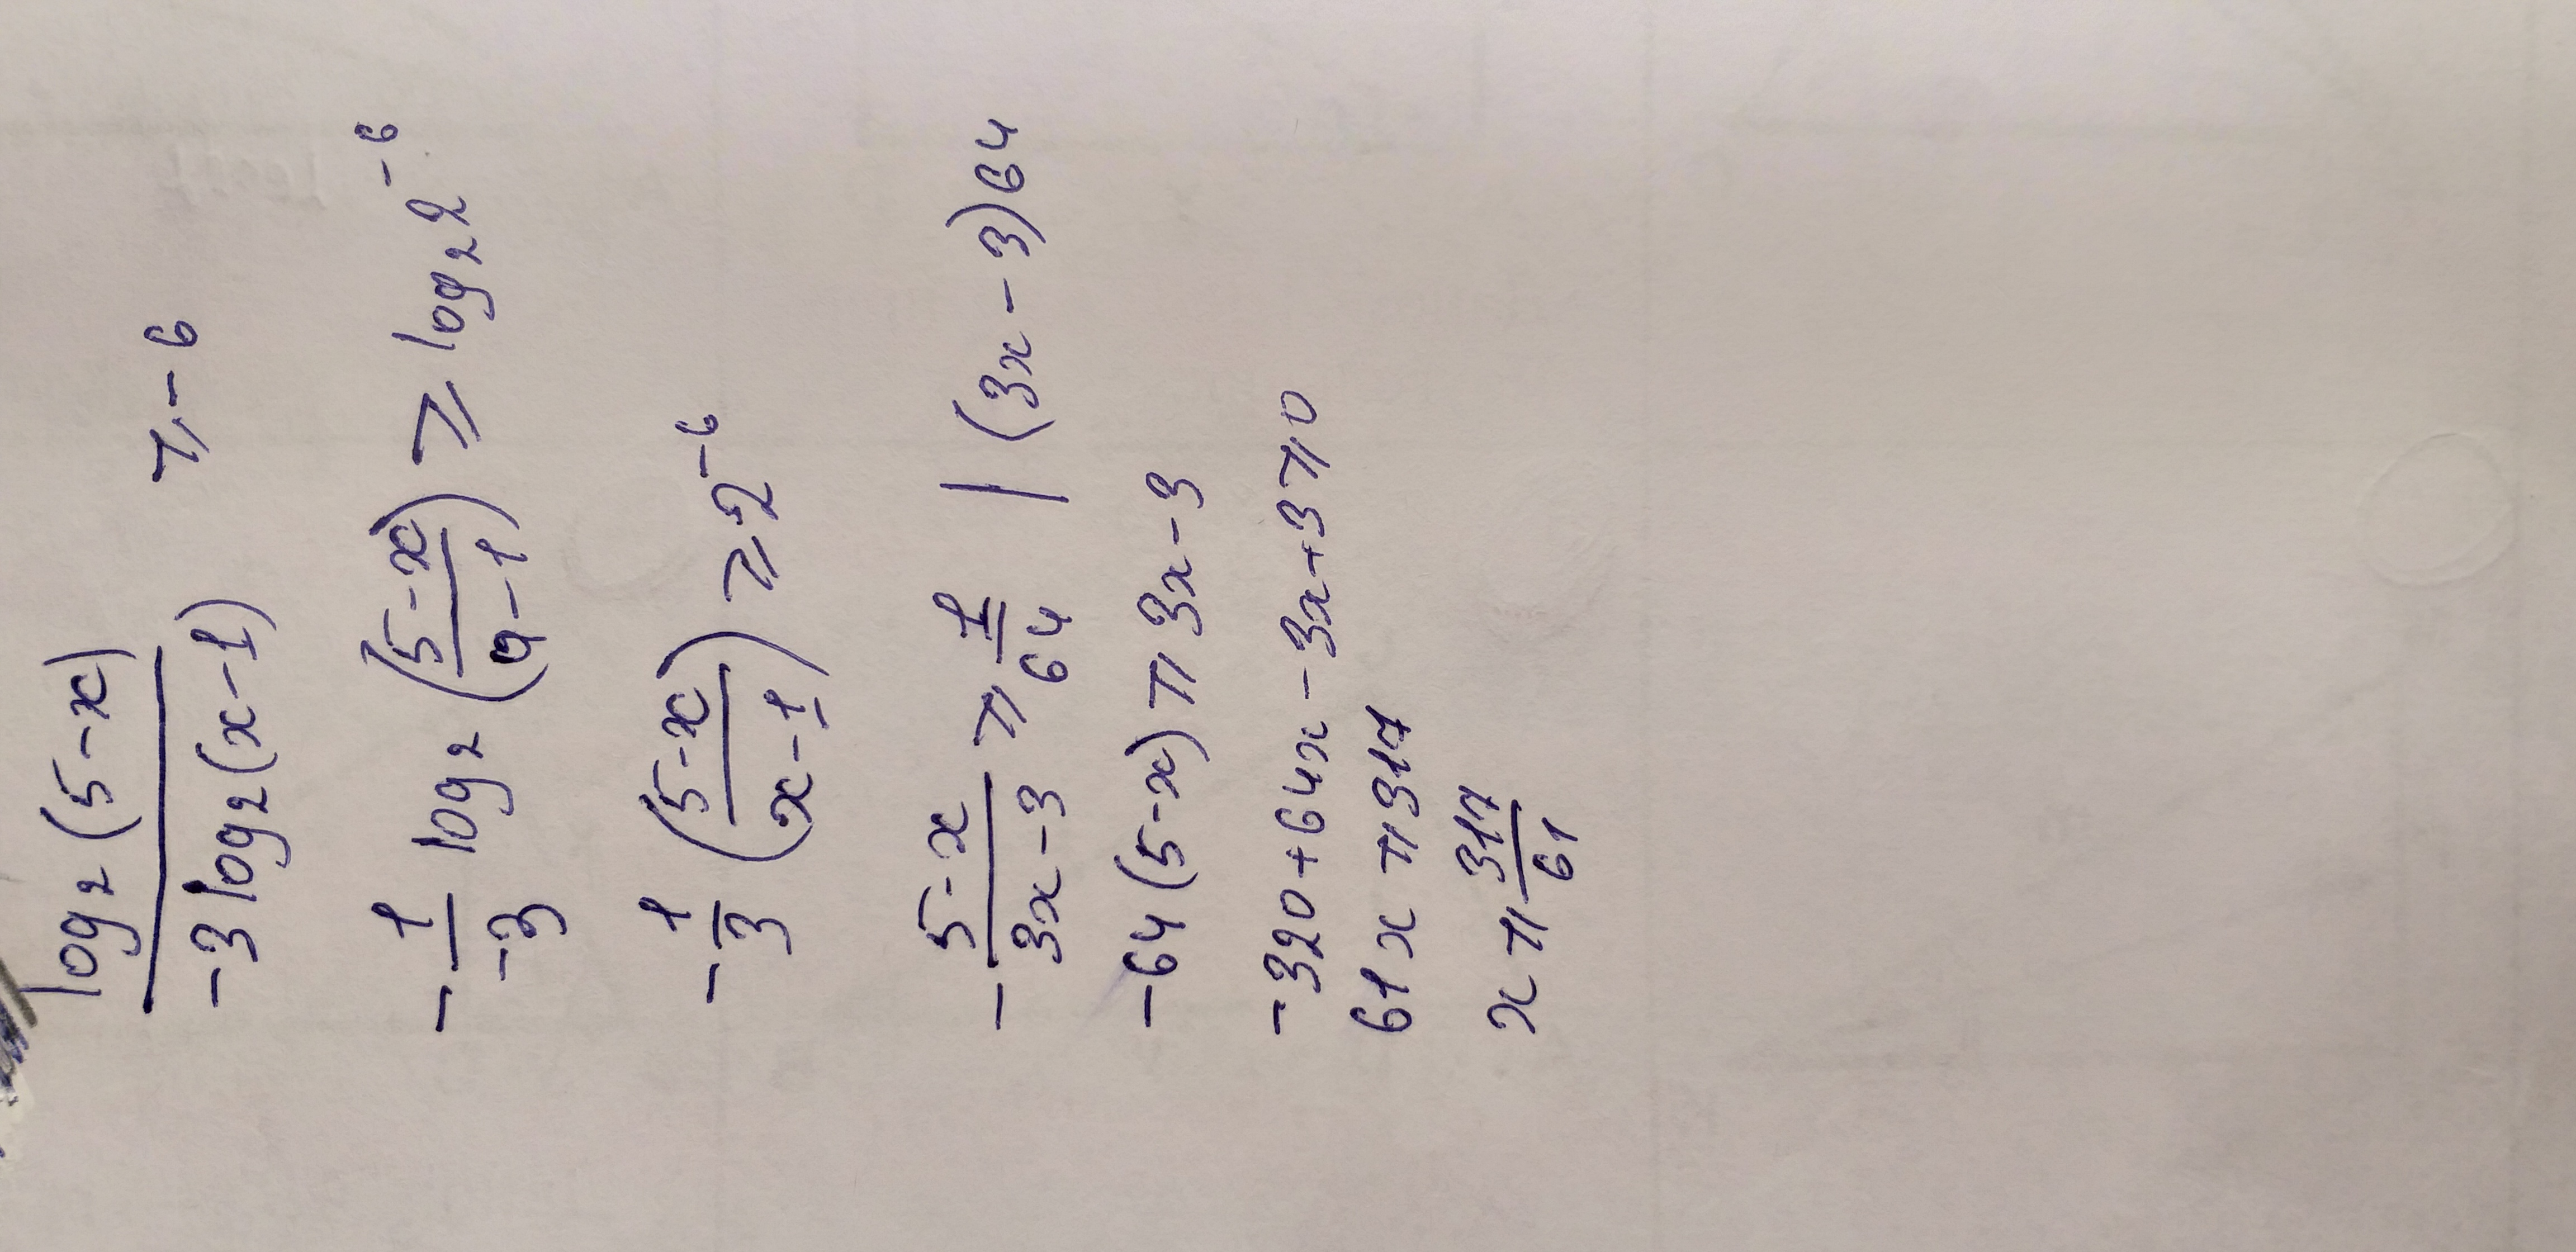 log₂(5-x) / -3log₂(x-1) ⩾ -6
- 1/-3 log₂ ((5-x)/(x-1)) ⩾ log₂ 2⁻⁶
- 1/3 ((5-x)/(x-1)) ⩾ 2⁻⁶
- (5-x)/(3x-3) ⩾ 1/64 | (3x-3)64
-64(5-x) ⩾ 3x-3
-320+64x-3x+3⩾0
61x ⩾ 317
x ⩾ 317/61